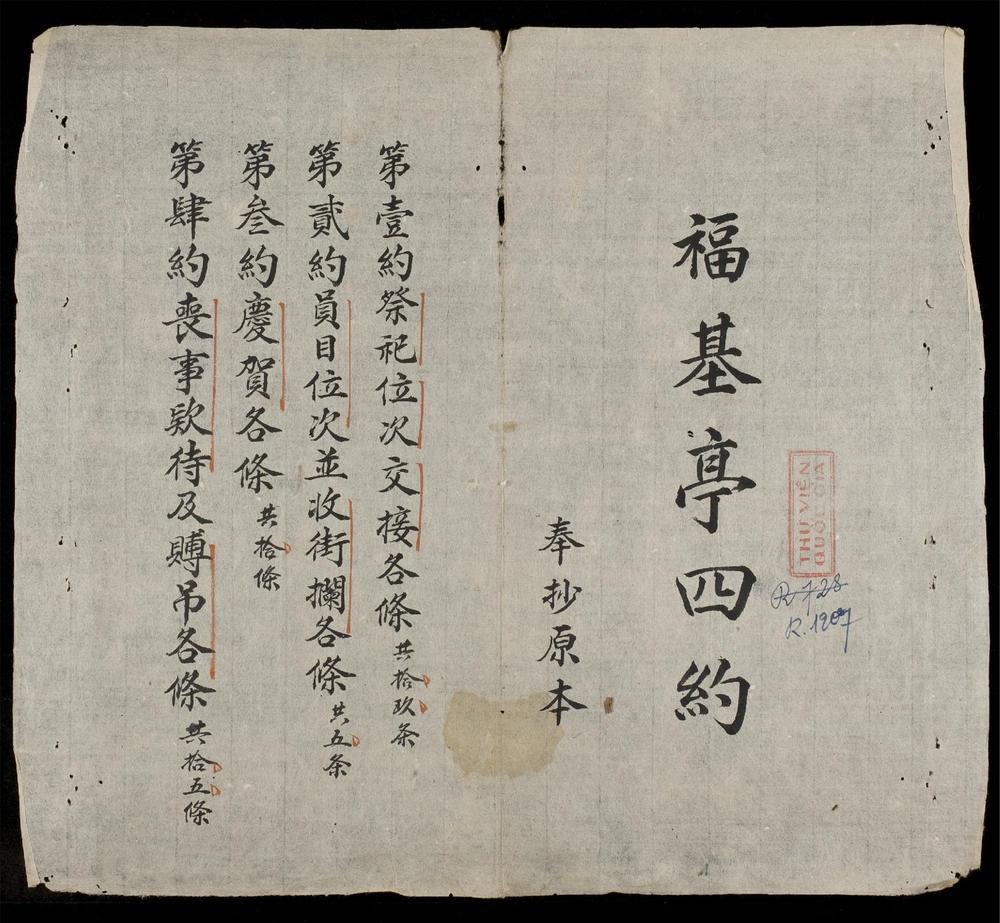 福基亭四約
THƯ VIỆN
QUỐC GIA
R 728
R.1207
奉抄原本
第壹約祭祀位次交接各條共拾玖条
第貳約員目位次並收街攔各條共五条
第叁約慶賀各條共拾條
第肆約喪事欵待及賻吊各條共拾五條